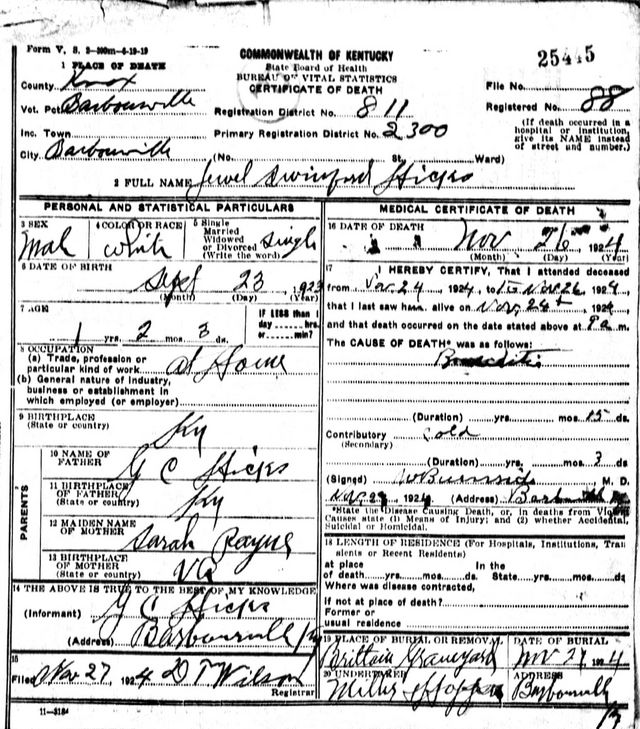 Form V. S. 2-300m-6-19-19
1 PLACE OF DEATH
County Knox
Vot. Pct Barbourville
Inc. Town
City Barbourville
COMMONWEALTH OF KENTUCKY
State Board of Health
BUREAU OF VITAL STATISTICS
CERTIFICATE OF DEATH
Registration District No. 811
Primary Registration District No. 2300
(No. St., Ward)
25445
File No.
Registered No. 88
(If death occurred in a
hospital or institution,
give its NAME instead
of street and number.)
2 FULL NAME Jewel Swinford Hicks
PERSONAL AND STATISTICAL PARTICULARS
3 SEX
Mal
4 COLOR OR RACE
White
5 Single
Married
Widowed
or Divorced
(Write the word)
Single
6 DATE OF BIRTH
Sept 23, 1923
(Month) (Day) (Year)
7 AGE
1 yrs. 2 mos. 3 ds.
IF LESS than 1
day hrs.
or min?
8 OCCUPATION
(a) Trade, profession or
particular kind of work at Home
(b) General nature of industry,
business or establishment in
which employed (or employer)
9 BIRTHPLACE
(State or country)
Ky
PARENTS
10 NAME OF
FATHER
G C Hicks
11 BIRTHPLACE
OF FATHER
(State or country)
Ky
12 MAIDEN NAME
OF MOTHER
Sarah Payne
13 BIRTHPLACE
OF MOTHER
(State or country)
VA
14 THE ABOVE IS TRUE TO THE BEST OF MY KNOWLEDGE
(Informant) G C Hicks
(Address) Barbourville Ky
15
Filed Nov 27, 1924 D T Wilson
Registrar
11-3184
MEDICAL CERTIFICATE OF DEATH
16 DATE OF DEATH
Nov 26, 1924
(Month) (Day) (Year)
17
I HEREBY CERTIFY, That I attended deceased
from Nov 24 1924, to Nov 26, 1924,
that I last saw him alive on Nov, 24th, 1924,
and that death occurred on the date stated above at 9 a m.
The CAUSE OF DEATH* was as follows:
(Duration) yrs. mos. 15 ds.
Contributory Cold
(Secondary)
(Duration) yrs. mos. 3 ds.
(Signed) W Burnside M. D.
1924 (Address)
*State the Disease Causing Death, or, in deaths from Violent
Causes state (1) Means of Injury; and (2) whether Accidental,
Suicidal or Homicidal.
18 LENGTH OF RESIDENCE (For Hospitals, Institutions, Tran
sients or Recent Residents)
at place
of death yrs. mos. ds.
In the
State yrs. mos. ds.
Where was disease contracted,
if not at place of death?
Former or
usual residence
19 PLACE OF BURIAL OR REMOVAL
Brittain Graveyard
DATE OF BURIAL
Nov 27, 1924
20 UNDERTAKER
Miller
ADDRESS
Barbourville
Ky